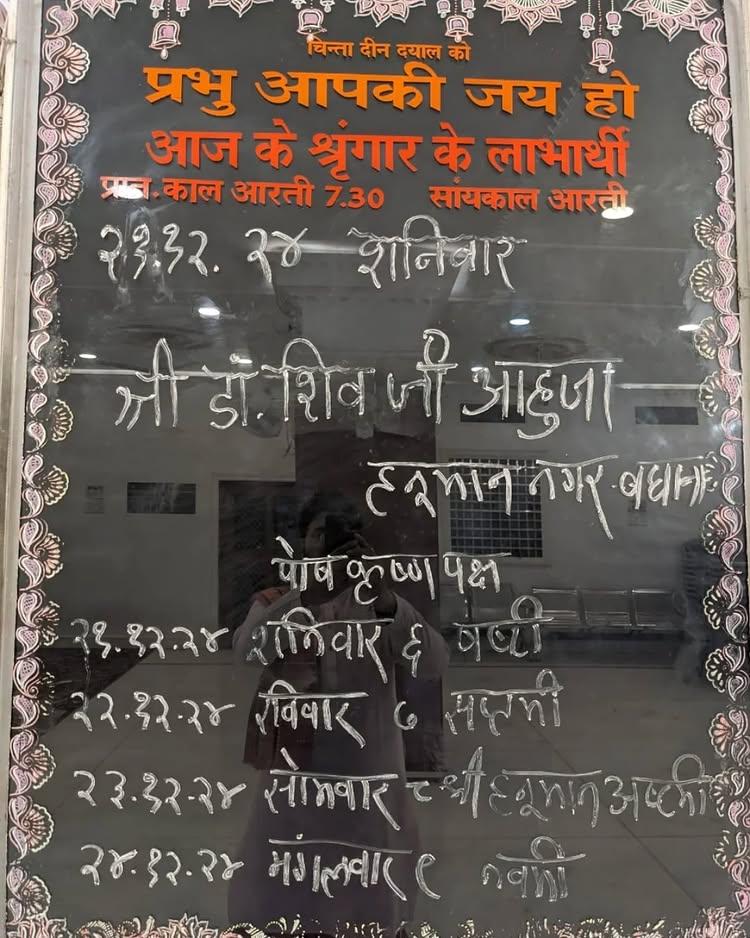 चिन्ता दीन दयाल को
प्रभु आपकी जय हो
आज के श्रृंगार के लाभार्थी
प्रात.काल आरती 7.30 सांयकाल आरती
२१.१२. २४ शनिवार
श्री डॉ. शिव जी आहुजा
हनुमान नगर
पोष कृष्ण पक्ष
२१.१२.२४ शनिवार ६ षष्टी
२२.१२.२४ रविवार ७ सप्तमी
२३.१२.२४ सोमवार ८ श्री हनुमान अष्टमी
२४.१२.२४ मंगलवार ९ नवमी